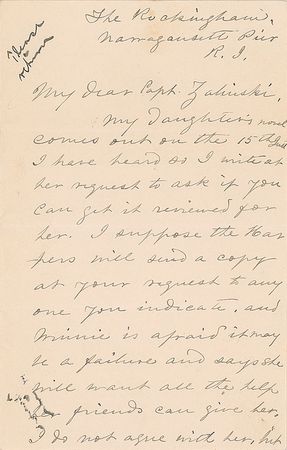 Please
return
The Rockingham,
Narragansett Pier
R. I.
My dear Capt. Zalinski,
My daughter's novel
comes out on the 15th Inst
I have heard so I write at
her request to ask if you
can get it reviewed for
her. I suppose the Har
pers will send a copy
at your request to any
one you indicate, and
Minnie is afraid it may
be a failure and says she
will want all the help
her friends can give her.
I do not agree with her, but